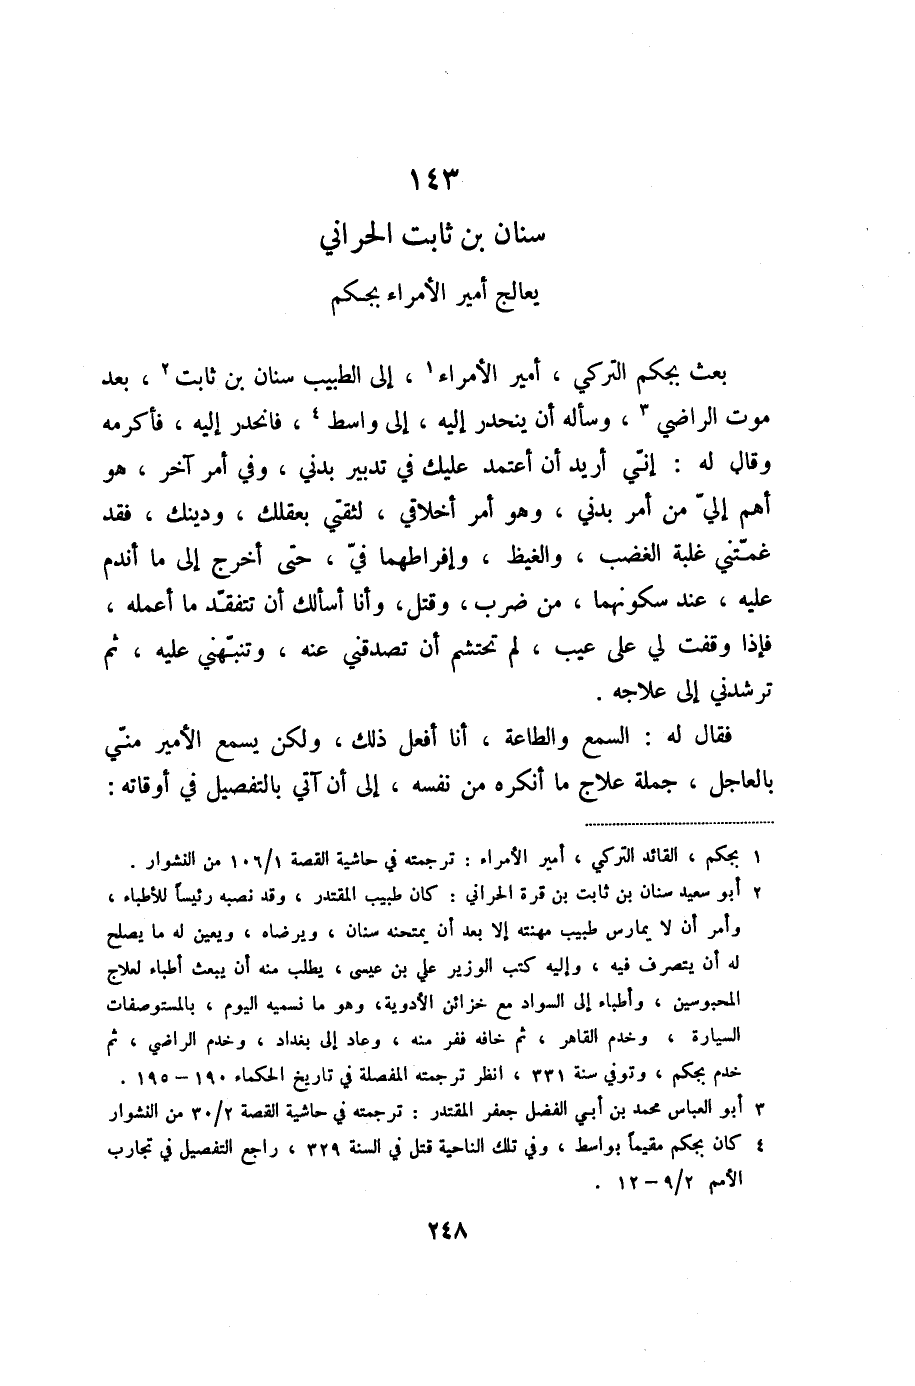 ١٤٣
سنان بن ثابت الحراني
يعالج أمير الأمراء بجكم
بعث بجكم التركي ، أمير الأمراء١ ، إلى الطبيب سنان بن ثابت٢ ، بعد
موت الراضي٣ ، وسأله أن ينحدر إليه ، إلى واسط٤ ، فانحدر إليه ، فأكرمه
وقال له : إنّي أريد أن أعتمد عليك في تدبير بدني ، وفي أمر آخر ، هو
أهم إليّ من أمر بدني ، وهو أمر أخلاقي ، لثقتي بعقلك ، ودينك ، فقد
غمّتني غلبة الغضب ، والغيظ ، وإفراطهما فيّ ، حتّى أخرج إلى ما أندم
عليه ، عند سكونهما ، من ضرب ، وقتل، وأنا أسألك أن تتفقّد ما أعمله ،
فإذا وقفت لي على عيب ، لم تحتشم أن تصدقني عنه ، وتنبّهني عليه ، ثم
ترشدني إلى علاجه .
فقال له : السمع والطاعة ، أنا أفعل ذلك ، ولكن يسمع الأمير منّي
بالعاجل ، جملة علاج ما أنكره من نفسه ، إلى أن آتي بالتفصيل في أوقاته :
١ بجكم ، القائد التركي ، أمير الأمراء : ترجمته في حاشية القصة ١٠٦/١ من النشوار .
٢ أبو سعيد سنان بن ثابت بن قرة الحراني : كان طبيب المقتدر ، وقد نصبه رئيساً للأطباء ،
وأمر أن لا يمارس طبيب مهنته إلا بعد أن يمتحنه سنان ، ويرضاه ، ويعين له ما يصلح
له أن يتصرف فيه ، وإليه كتب الوزير علي بن عيسى ، يطلب منه أن يبعث أطباء لعلاج
المحبوسين ، وأطباء إلى السواد مع خزائن الأدوية، وهو ما نسميه اليوم ، بالمستوصفات
السيارة ، وخدم القاهر ، ثم خافه ففر منه ، وعاد إلى بغداد ، وخدم الراضي ، ثم
خدم بجكم ، وتوفي سنة ٣٣١ ، انظر ترجمته المفصلة في تاريخ الحكماء ١٩٠ – ١٩٥ .
٣ أبو العباس محمد بن أبي الفضل جعفر المقتدر : ترجمته في حاشية القصة ٣٠/٢ من النشوار
٤ كان بجكم مقيماً بواسط ، وفي تلك الناحية قتل في السنة ٣٢٩ ، راجع التفصيل في تجارب
الأمم ٩/٢ – ١٢ .
٢٤٨